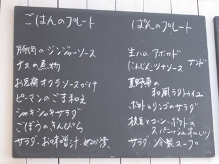 ごはんのプレート
豚肉のジンジャーソース
ナスの煮物
お豆腐オクラソースがけ
ピーマンのごま和え
シャキシャキサラダ
ごぼうのきんぴら
サラダ・お味噌汁・ぬか漬
ぱんのプレート
生ハム・アボカド
にんじん・ツナソース
サンド
夏野菜の
和風ラタトゥイユ
ポテトとリンゴのサラダ
枝豆とコーン・ポテトの
スパニッシュオムレツ
サラダ・冷製スープ